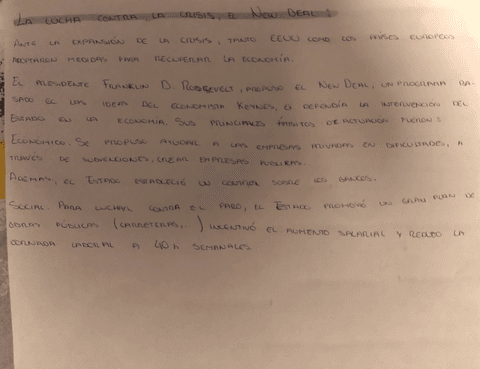 LA LUCHA CONTRA LA CRISIS, EL NEW DEAL :
ANTE LA EXPANSIÓN DE LA CRISIS, TANTO EEUU COMO LOS PAÍSES EUROPEOS
ADOPTARON MEDIDAS PARA RECUPERAR LA ECONOMÍA.
EL PRESIDENTE FRANKLIN D. ROOSEVELT, PROPUSO EL NEW DEAL, UN PROGRAMA BA-
SADO EN LAS IDEAS DEL ECONOMISTA KEYNES, EL DEFENDÍA LA INTERVENCIÓN DEL
ESTADO EN LA ECONOMÍA. SUS PRINCIPALES ÁMBITOS DE ACTUACIÓN FUERON :
ECONÓMICO. SE PROPUSO AYUDAR A LAS EMPRESAS PRIVADAS EN DIFICULTADES, A
TRAVÉS DE SUBVENCIONES, CREAR EMPRESAS PÚBLICAS.
ADEMÁS, EL ESTADO ESTABLECIÓ UN CONTROL SOBRE LOS BANCOS.
SOCIAL. PARA LUCHAR CONTRA EL PARO, EL ESTADO PROMOVIÓ UN GRAN PLAN DE
OBRAS PÚBLICAS (CARRETERAS, ) INCENTIVÓ EL AUMENTO SALARIAL Y REDUJO LA
JORNADA LABORAL A 40 h SEMANALES